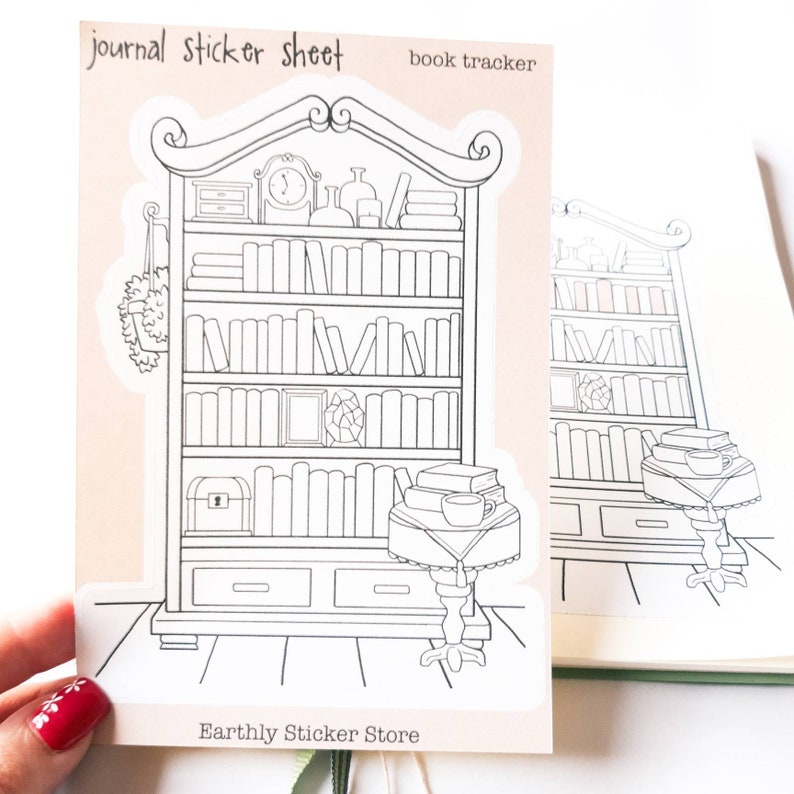 journal sticker sheet
book tracker
Earthly Sticker Store